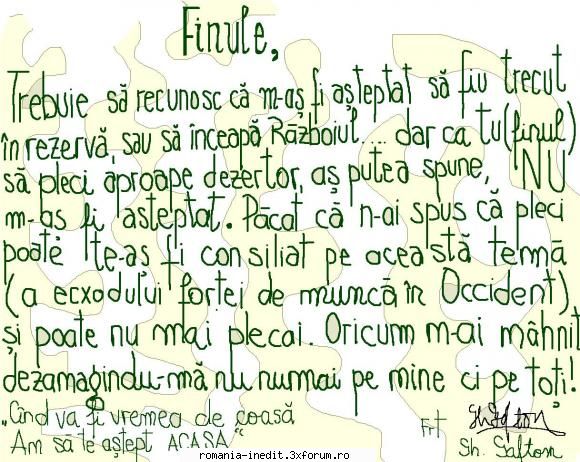 Finule,
Trebuie să recunosc că m-aș fi așteptat să fiu trecut
în rezervă, sau să înceapă Războiul.... dar ca tu (finul)
să pleci aproape dezertor, aș putea spune, NU
m-as fi asteptat. Păcat că n-ai spus că pleci
poate te-as fi consiliat pe această temă
(a ecxodului fortei de muncă în Occident),
și poate nu mai plecai. Oricum m-ai mâhnit
dezamagindu-mă nu numai pe mine ci pe toți!
„Cînd va fi vremea de coasă
Am să te aștept ACASA“
Frt
Sh. Salton
romania-inedit.3xforum.ro